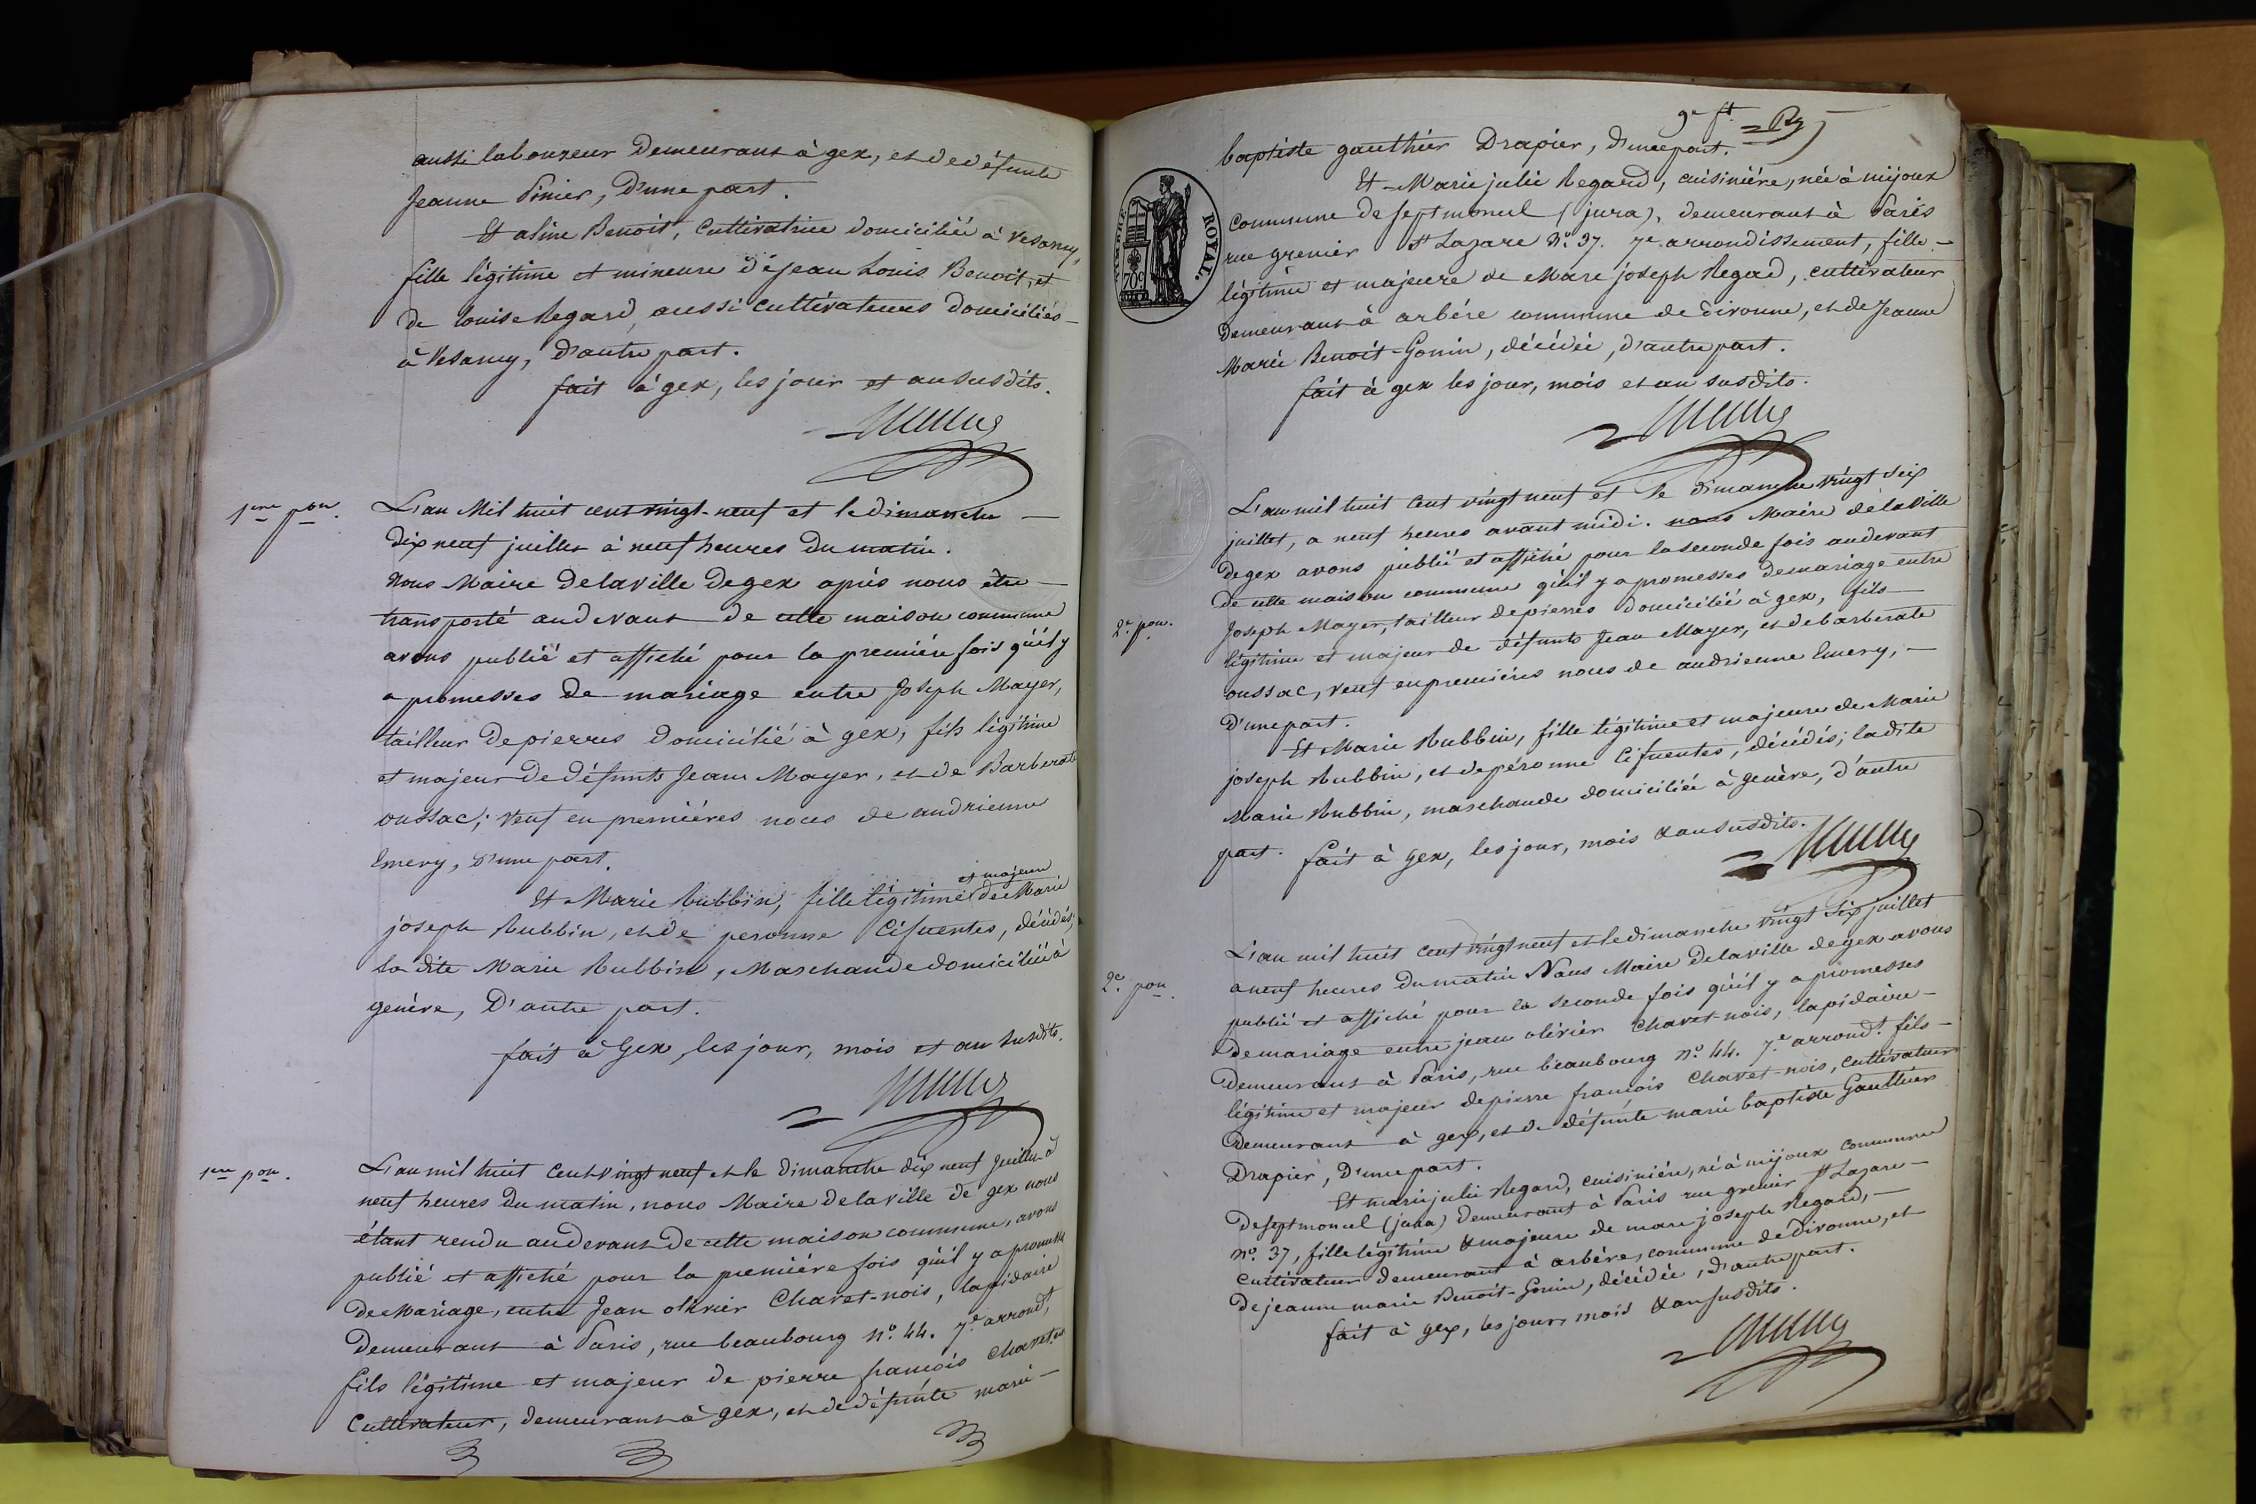 aussi laboureur demeurant à gex, et de défunte
Jeanne Pinier, d'une part.
Et aline Benoit, cultivatrice domiciliée à Vesancy,
fille légitime et mineure de jean Louis Benoit, et
de louise Regard, aussi cultivateurs domiciliés
à Vesancy, d'autre part.
fait à gex, les jour et an susdits.
1ere pon.
L'an Mil huit cent vingt-neuf et le dimanche
dix neuf juillet à neuf heures du matin.
Nous Maire de la ville de gex après nous être
transporté au devant de cette maison commune
avons publié et affiché pour la première fois qu'il y
a promesses de mariage entre Joseph Mayer,
tailleur de pierres domicilié à gex, fils légitime
et majeur de défunts Jean Mayer, et de Barberate
oussac; veuf en premières noces de andrienne
Emery, d'une part.
et majeure
Et Marie Rubbin, fille légitime de Marie
joseph Rubbin, et de peronne Cifuentes, décédés;
la dite Marie Rubbin, Marchande domiciliée à
genève, D'autre part.
fait à Gex, les jour, mois et an susdits.
1ere pon.
L'an mil huit cent vingt neuf et le dimanche dix neuf juillet à
neuf heures du matin, nous Maire de la ville de gex nous
étant rendu au devant de cette maison commune, avons
publié et affiché pour la première fois qu'il y a promesses
de Mariage, entre Jean olivier Chavet-nois, lapidaire
demeurant à Paris, rue beaubourg no. 44. 7e arrondt,
fils légitime et majeur de pierre francois Chavet
Cultivateur, demeurant à gex, et de défunte marie
9e ft.
baptiste gauthier Drapier, d'une part.
Et Marie julie Regard, cuisinière, née à mijoux
commune de septmoncel (jura), demeurant à Paris
rue grenier St Lazare No. 37. 7e arrondissement, fille
légitime et majeure de Marc joseph Regard, cultivateur
demeurant à arbére commune de divonne, et de Jeanne
Marie Benoit-Gonin, décédée, d'autre part.
fait à gex les jour, mois et an susdits.
ROYAL.
70c
L'an mil huit cent vingt neuf et le dimanche vingt six
juillet, a neuf heures avant midi. nous Maire de la Ville
de gex avons publié et affiché pour la seconde fois au devant
de cette maison commune qu'il y a promesses de mariage entre
2e. pon.
Joseph Mayer, tailleur de pierres domicilié à gex, fils
légitime et majeur de défunts Jean Mayer, et de barberate
oussac, veuf en premières noces de andrienne Emery,
d'une part.
Et Marie Rubbin, fille légitime et majeure de Marie
joseph Rubbin, et de péronne Cifuentes, décédés; la dite
Marie Rubbin, marchande domiciliée à genève, d'autre
part. fait à Gex, les jour, mois & an susdits.
L'an mil huit cent vingt neuf et le dimanche vingt six juillet
2e. pon.
a neuf heures du matin Nous Maire de la ville de gex avons
publié et affiché pour la seconde fois qu'il y a promesses
de mariage entre jean olivier Chavet-nois, lapidaire
demeurant à Paris, rue beaubourg no. 44. 7e arrondt. fils
légitime et majeur de pierre francois Chavet-nois, cultivateur
demeurant à gex, et de défunte marie baptiste Gauthier
Drapier, d'une part.
Et marie julie Regard, cuisinière, né à mijoux commune
de septmoncel (jura) demeurant à Paris rue grenier St Lazare
no. 37, fille légitime & majeure de marc joseph Regard,
cultivateur demeurant à arbére, commune de divonne, et
de jeanne marie Benoit-Gonin, décédée, d'autre part.
fait à gex, les jour, mois & an susdits.